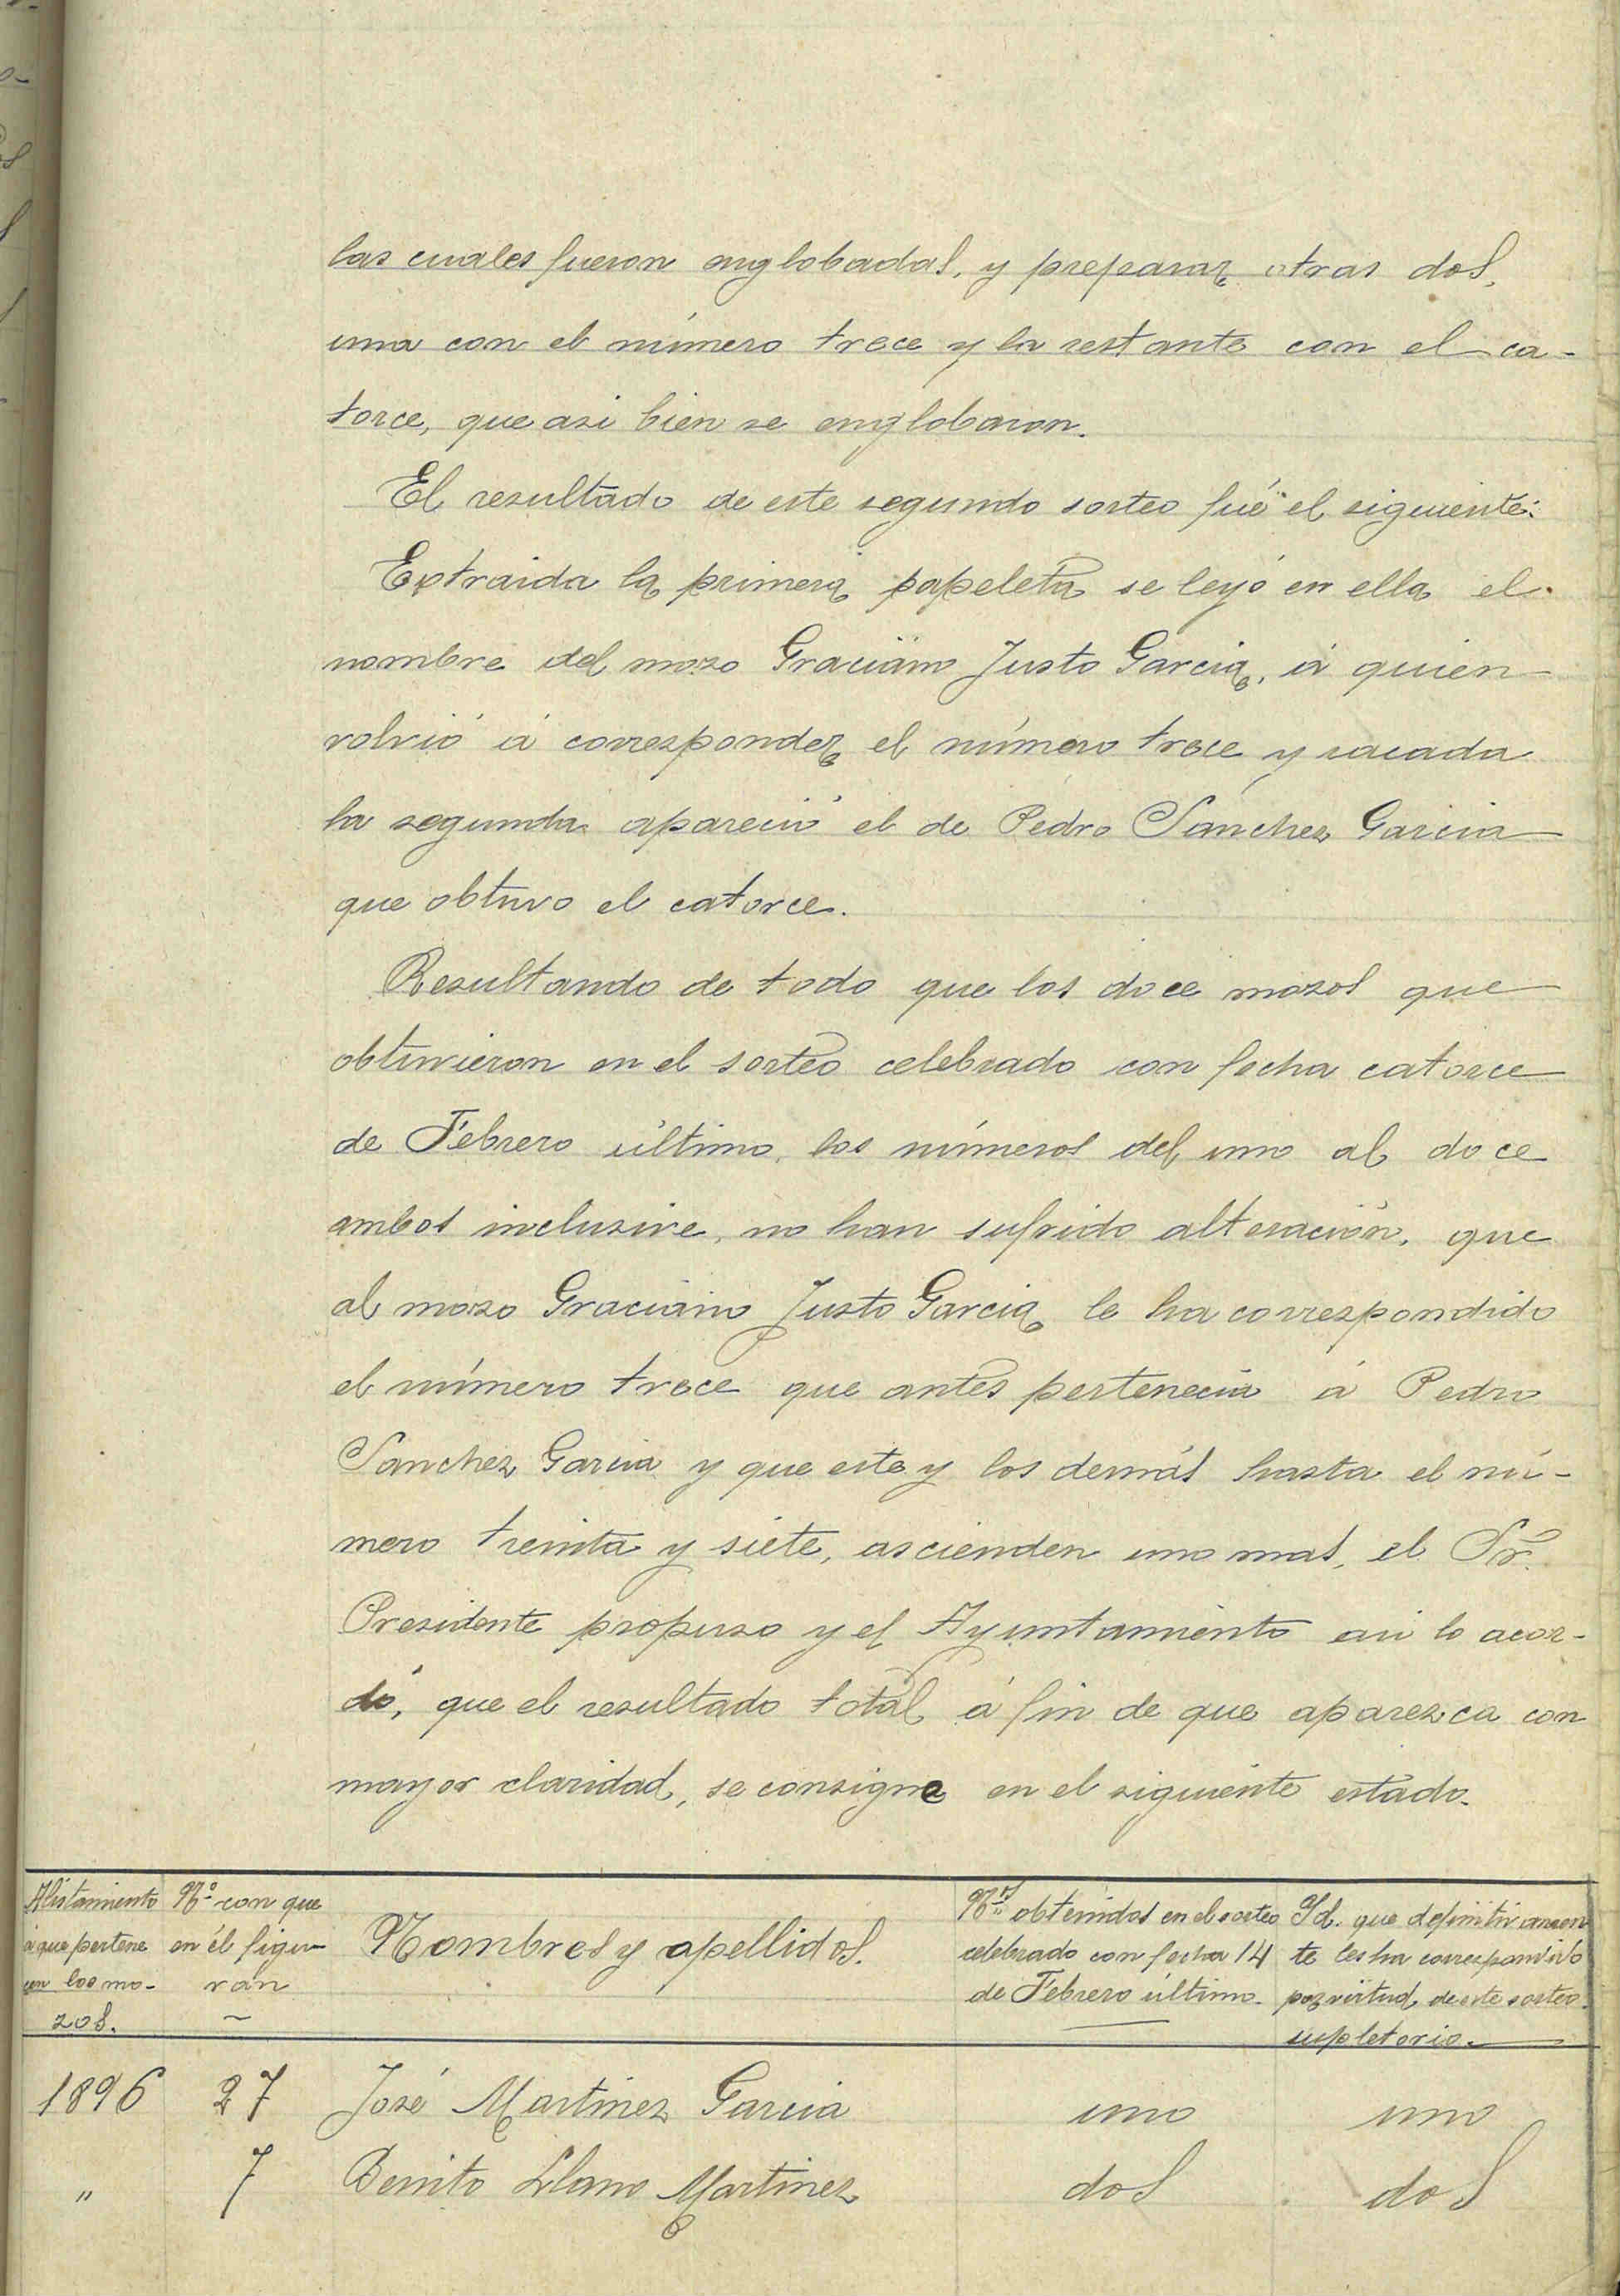 las cuales fueron englobadas, y preparar otras dos,
una con el número trece y la restante con el ca-
torce, que asi bien se englobaron.
El resultado de este segundo sorteo fué el siguiente:
Extraida la primera papeleta se leyó en ella el
nombre del mozo Graciano Justo Garcia, á quien
volvió á corresponder el número trece y sacada
la segunda apareció el de Pedro Sánchez Garcia
que obtuvo el catorce.
Resultando de todo que los doce mozos que
obtuvieron en el sorteo celebrado con fecha catorce
de Febrero último, los números del uno al doce
ambos inclusive, no han sufrido alteración, que
al mozo Graciano Justo Garcia le ha correspondido
el número trece que antes pertenecia á Pedro
Sanchez Garcia y que este y los demás hasta el nú-
mero treinta y siete, ascienden uno mas, el Sr.
Presidente propuso y el Ayuntamiento asi lo acor-
dó, que el resultado total á fin de que aparezca con
mayor claridad, se consigne en el siguiente estado.
Alistamiento á que pertene cen los mo- zos.
Nº con que en él figu- rán
Nombres y apellidos.
Nos obtenidos en el sorteo celebrado con fecha 14 de Febrero último.
Id. que definitivamen te les ha correspondido por virtud de este sorteo supletorio.
1896 27 José Martinez Garcia uno uno
" 7 Benito Llano Martinez dos dos